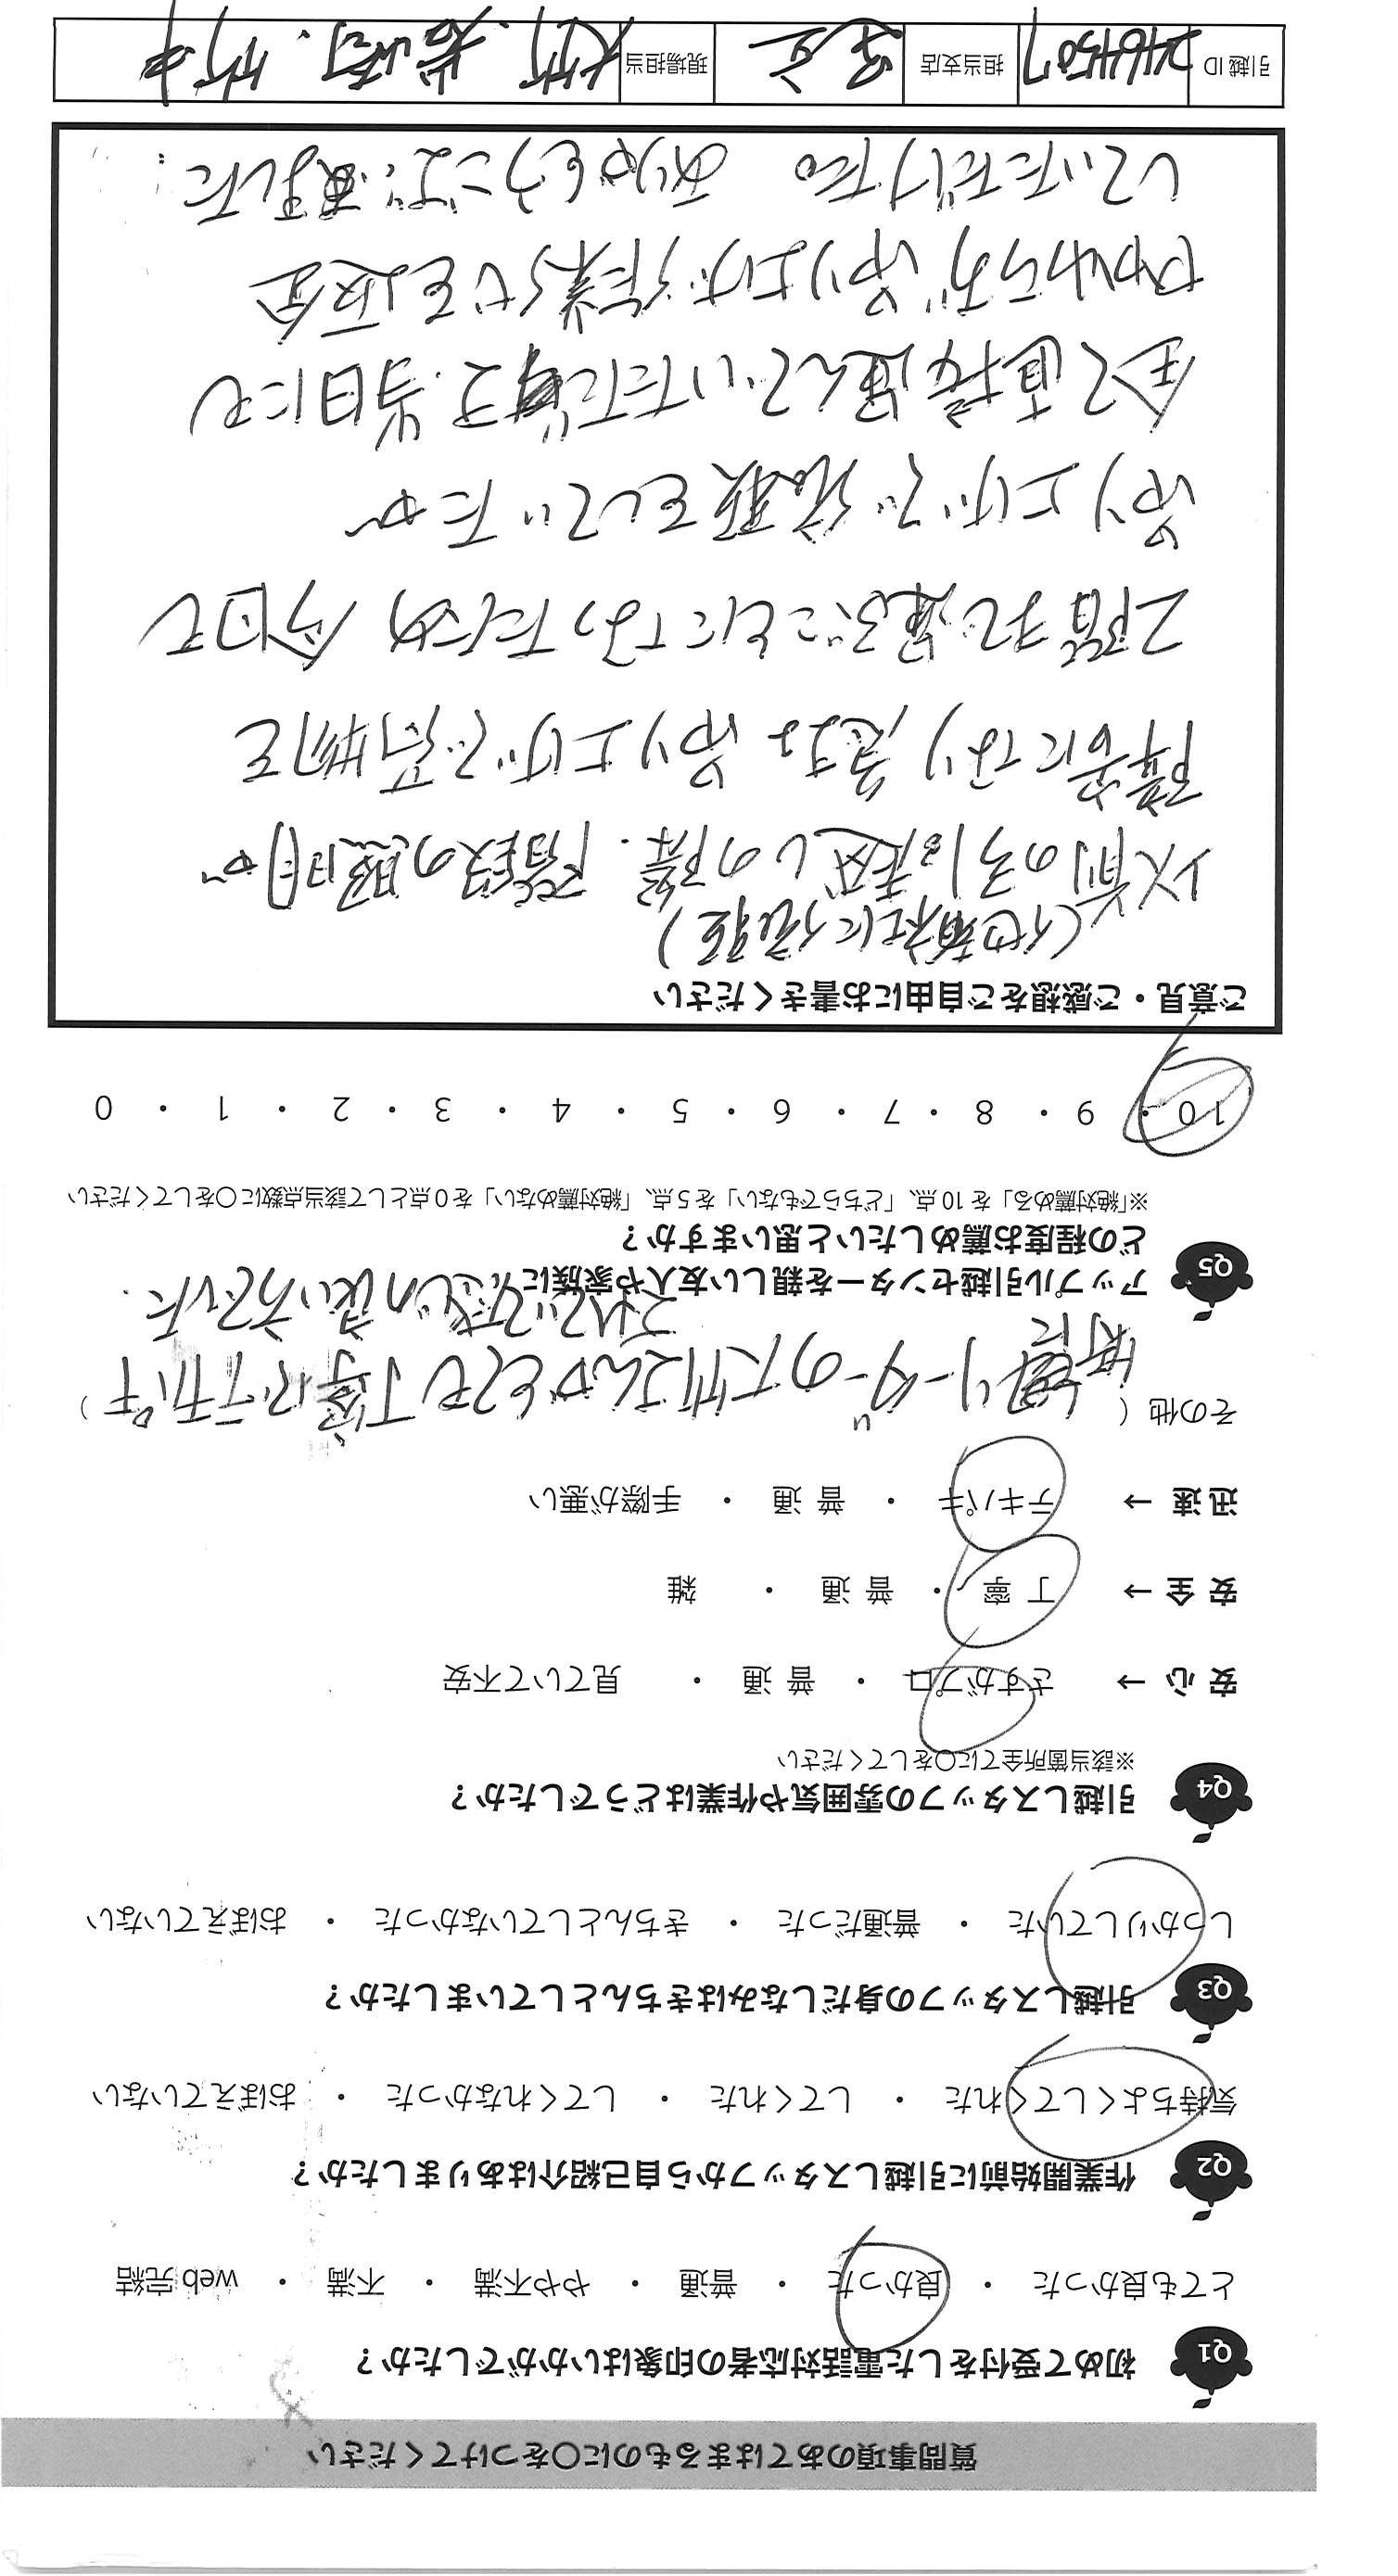 質問事項のあてはまるものに〇をつけてください
Q1 初めて受付をした電話対応者の印象はいかがでしたか？
とても良かった ・ 良かった ・ 普通 ・ やや不満 ・ 不満 ・ web完結
Q2 作業開始前に引越しスタッフから自己紹介はありましたか？
気持ちよくしてくれた ・ してくれた ・ してくれなかった ・ おぼえていない
Q3 引越しスタッフの身だしなみはきちんとしていましたか？
しっかりしていた ・ 普通だった ・ きちんとしていなかった ・ おぼえていない
Q4 引越しスタッフの雰囲気や作業はどうでしたか？
※該当箇所全てに〇をしてください
安心 → さすがプロ ・ 普通 ・ 見ていて不安
安全 → 丁寧 ・ 普通 ・ 雑
迅速 → テキパキ ・ 普通 ・ 手際が悪い
その他（ 特に リーダーの大竹さんがとても丁寧でテキパキ ）
それでいて感じの良い方でした．
Q5 アップル引越センターを親しい友人や家族に
どの程度お薦めしたいと思いますか？
※「絶対薦める」を10点、「どちらでもない」を5点、「絶対薦めない」を0点として該当点数に〇をしてください
10 ・ 9 ・ 8 ・ 7 ・ 6 ・ 5 ・ 4 ・ 3 ・ 2 ・ 1 ・ 0
ご意見・ご感想をご自由にお書きください
（他社に依頼）
以前の引っ越しの際．階段の照明が
障害になり急きょ 吊り上げで荷物を
2階まで運ぶことになったため 今回も
吊り上げで依頼をしていたが
全て直接運んでいただきまして．当日にも
かかわらず 吊り上げ作業代を返金
していただけた。 ありがとうございました
引越ID 担当支店 現場担当 大竹．岩崎．竹中